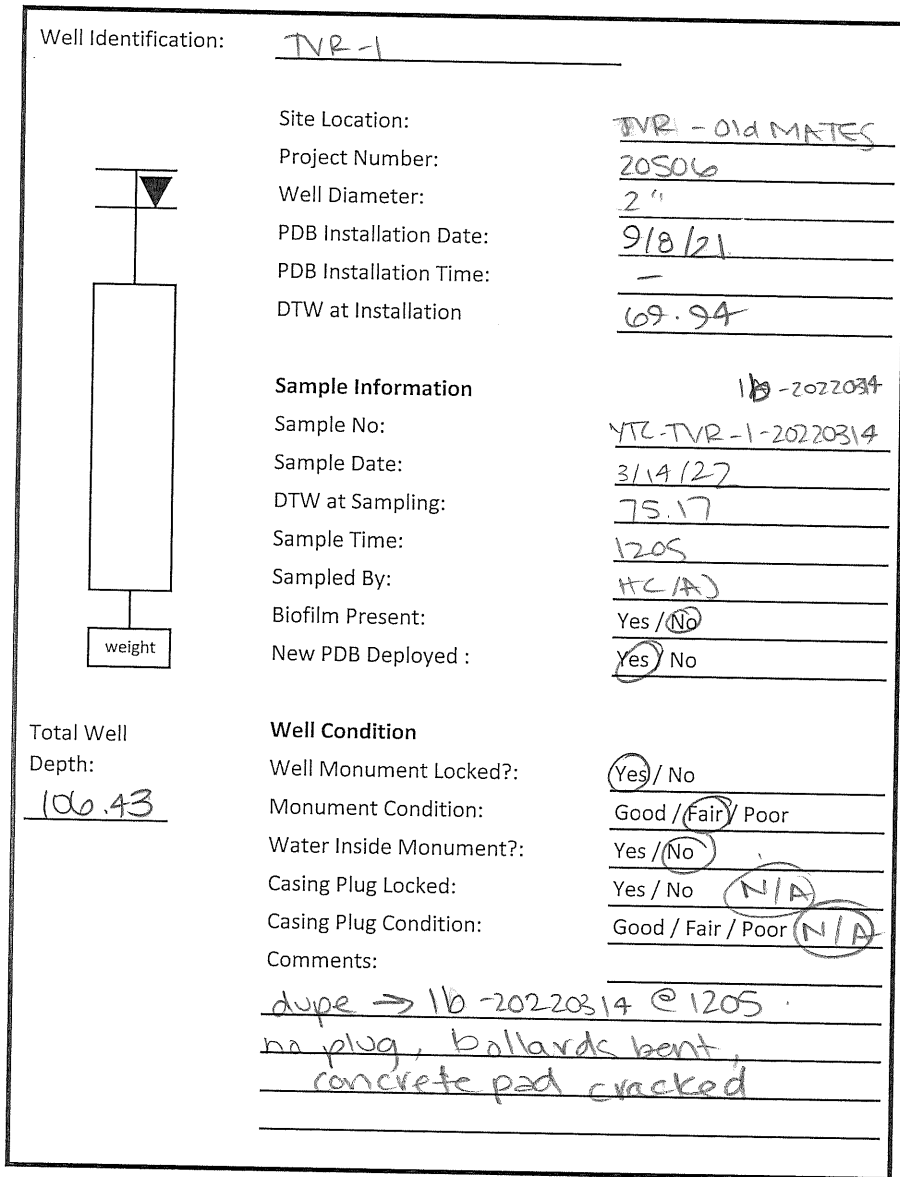 Well Identification: TVR-1
Site Location: TVR - Old MATES
Project Number: 20506
Well Diameter: 2"
PDB Installation Date: 9/8/21
PDB Installation Time: —
DTW at Installation 69.94
Sample Information 1b-20220314
Sample No: YTC-TVR-1-20220314
Sample Date: 3/14/22
DTW at Sampling: 75.17
Sample Time: 1205
Sampled By: HC/AJ
Biofilm Present: Yes / No
weight
New PDB Deployed : Yes / No
Total Well
Depth:
106.43
Well Condition
Well Monument Locked?: Yes / No
Monument Condition: Good / Fair / Poor
Water Inside Monument?: Yes / No
Casing Plug Locked: Yes / No N/A
Casing Plug Condition: Good / Fair / Poor N/A
Comments:
dupe → 1b-20220314 @ 1205
no plug, bollards bent,
concrete pad cracked